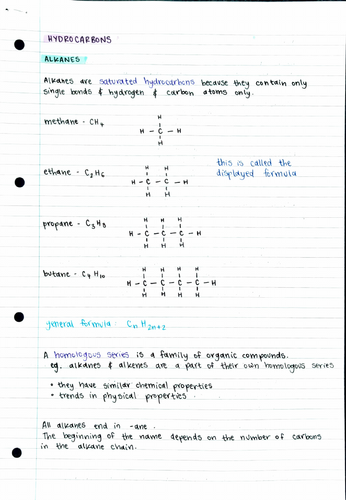 HYDROCARBONS
ALKANES
Alkanes are saturated hydrocarbons because they contain only
single bonds & hydrogen & carbon atoms only.
methane - CH₄
H
H - C - H
H
ethane - C₂H₆
H H
H - C - C - H
H H
this is called the
displayed formula
propane - C₃H₈
H H H
H - C - C - C - H
H H H
butane - C₄H₁₀
H H H H
H - C - C - C - C - H
H H H H
general formula : CₙH₂ₙ₊₂
A homologous series is a family of organic compounds.
eg. alkanes & alkenes are a part of their own homologous series
• they have similar chemical properties
• trends in physical properties .
All alkanes end in -ane .
The beginning of the name depends on the number of carbons
in the alkane chain.